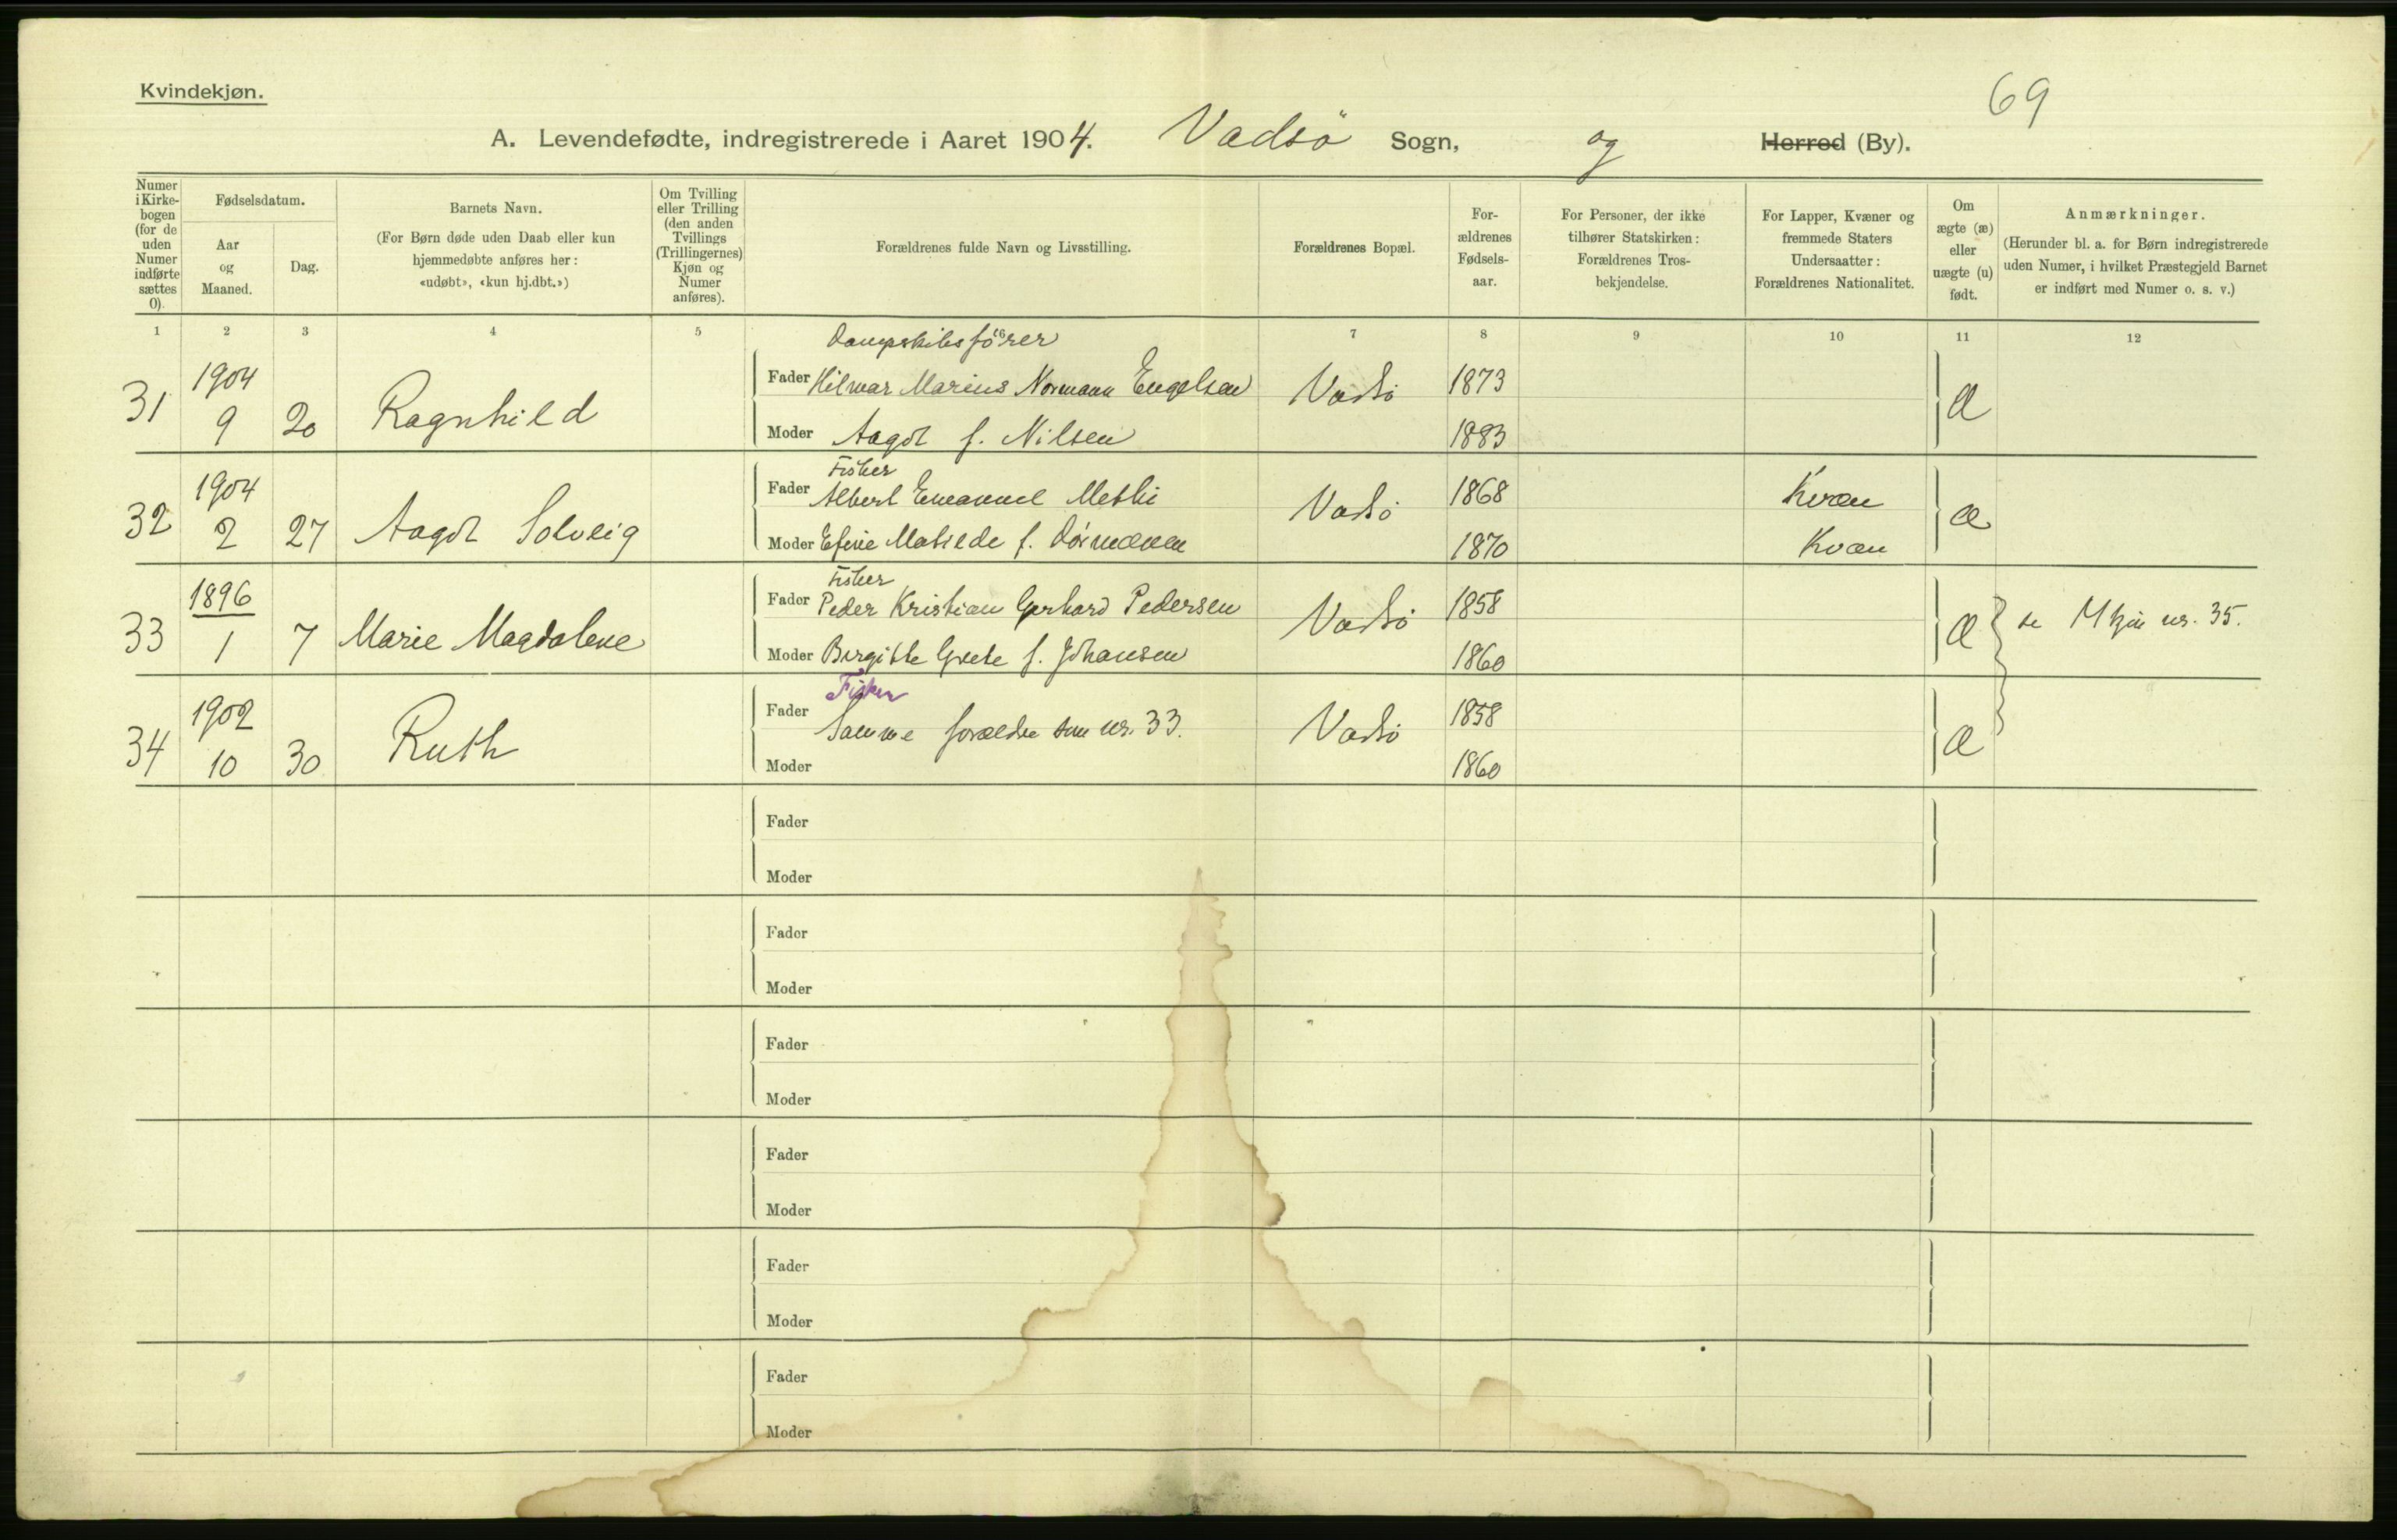 Kvindekjøn.
69
A. Levendefødte, indregistrerede i Aaret 1904. Vadsö Sogn, og Herred (By).
Numer i Kirkebogen (for de uden Numer indførte sættes 0).
Fødselsdatum.
Aar og Maaned.
Dag.
Barnets Navn.
(For Børn døde uden Daab eller kun hjemmedøbte anføres her: «udøbt», «kun hj.dbt.»)
Om Tvilling eller Trilling (den anden Tvillings (Trillingernes) Kjøn og Numer anføres).
Forældrenes fulde Navn og Livsstilling.
Forældrenes Bopæl.
Forældrenes Fødselsaar.
For Personer, der ikke tilhører Statskirken: Forældrenes Trosbekjendelse.
For Lapper, Kvæner og fremmede Staters Undersaatter: Forældrenes Nationalitet.
Om ægte (æ) eller uægte (u) født.
Anmærkninger.
(Herunder bl. a. for Børn indregistrerede uden Numer, i hvilket Præstegjeld Barnet er indført med Numer o. s. v.)
1 2 3 4 5 6 7 8 9 10 11 12
Dampskibsfører
31 1904 9 20 Ragnhild
Fader Hilmar Marius Normann Engelsen Vadsö 1873 æ
Moder Aagot f. Nilsen 1883
Fisker
32 1904 2 27 Aagot Solveig
Fader Albert Emanuel Vadsö 1868 Kvæn æ
Moder Matilde f. 1870 Kvæn
Fisker
33 1896 1 7 Marie Magdalene
Fader Peder Kristian Gerhard Pedersen Vadsö 1858 æ se Mkjön nr. 35.
Moder Birgitte Grete f. Johansen 1860
Fisker
34 1902 10 30 Ruth
Fader Samme forældre som nr. 33. Vadsö 1858 æ
Moder 1860
Fader
Moder
Fader
Moder
Fader
Moder
Fader
Moder
Fader
Moder
Fader
Moder